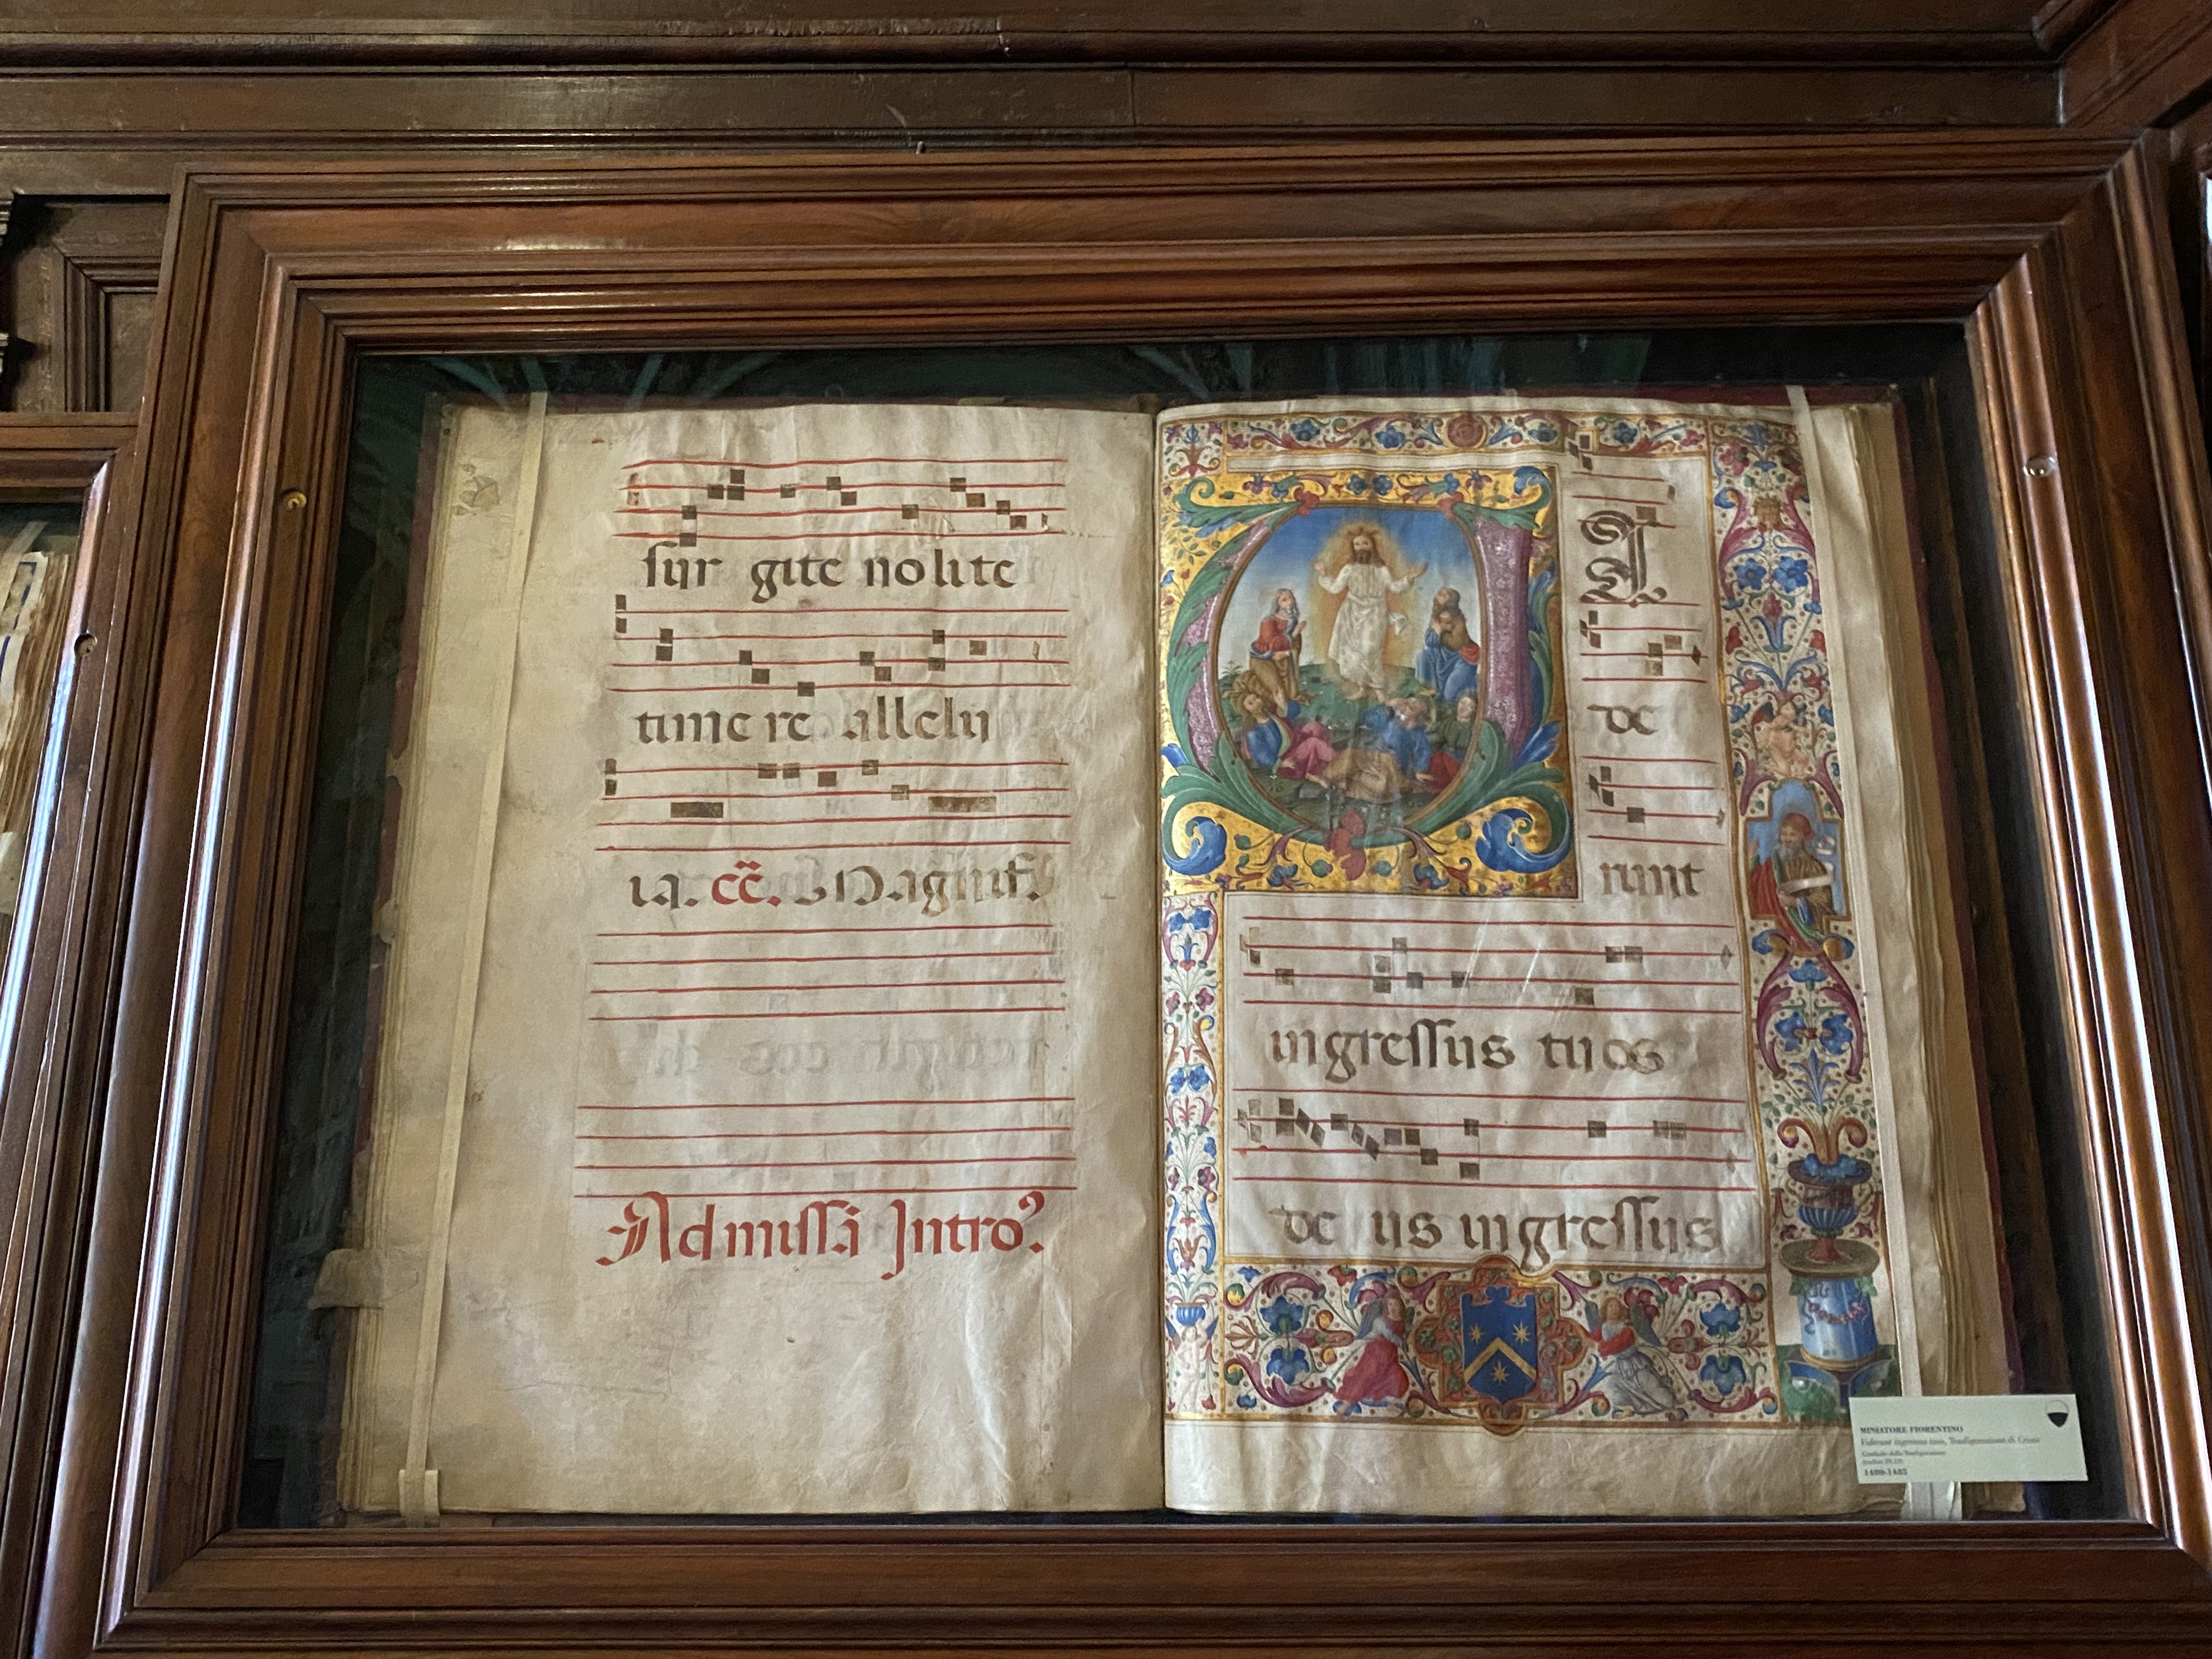 sur gite nolite
time re allelu
ia. Magnif.
Ad missã Intro
V I
de
runt
ingressus tuos
de us ingressus
MINIATORE FIORENTINO
Viderunt ingressus tuos, Trasfigurazione di Cristo
Graduale della Trasfigurazione
1480-1485